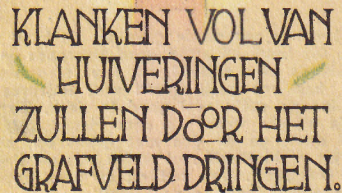 KLANKEN VOL VAN
HUIVERINGEN
ZULLEN DOOR HET
GRAFVELD DRINGEN.